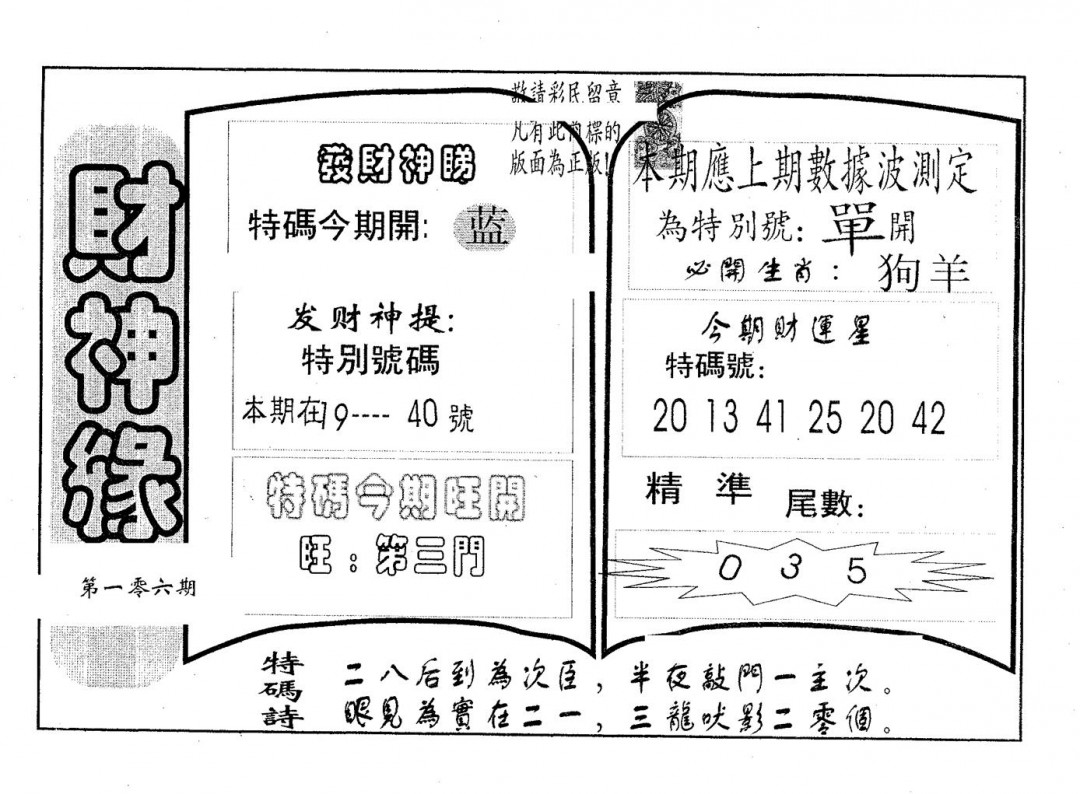 財神緣
第一零六期
敬請彩民留意
凡有此商標的
版面為正版!
發財神睇
特碼今期開: 蓝
发财神提:
特別號碼
本期在19---- 40號
特碼今期旺開
旺:第三門
本期應上期數據波測定
為特別號: 單開
必開生肖: 狗羊
今期財運星
特碼號:
20 13 41 25 20 42
精準 尾數:
0 3 5
特碼詩
二八后到為次臣,半夜敲門一主次。
眼見為實在二一,三龍吠影二零個。